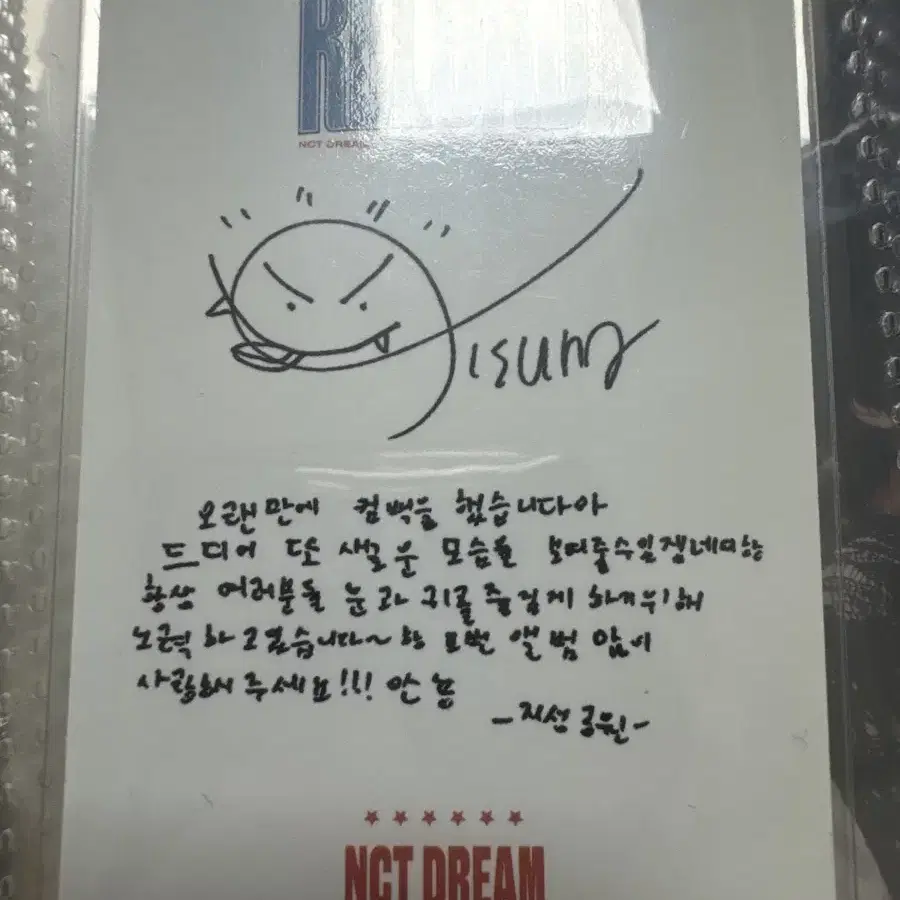 R
NCT DREAM
Jisung
오랜만에 컴백을 했습니다아
드디어 또 새로운 모습을 보여줄수있겠네여항
항상 여러분들 눈과 귀를 즐겁게 하기위해
노력하고있습니다~항 요번 앨범 많이
사랑해주세요!!! 안뇽
-지성 로윈-
NCT DREAM